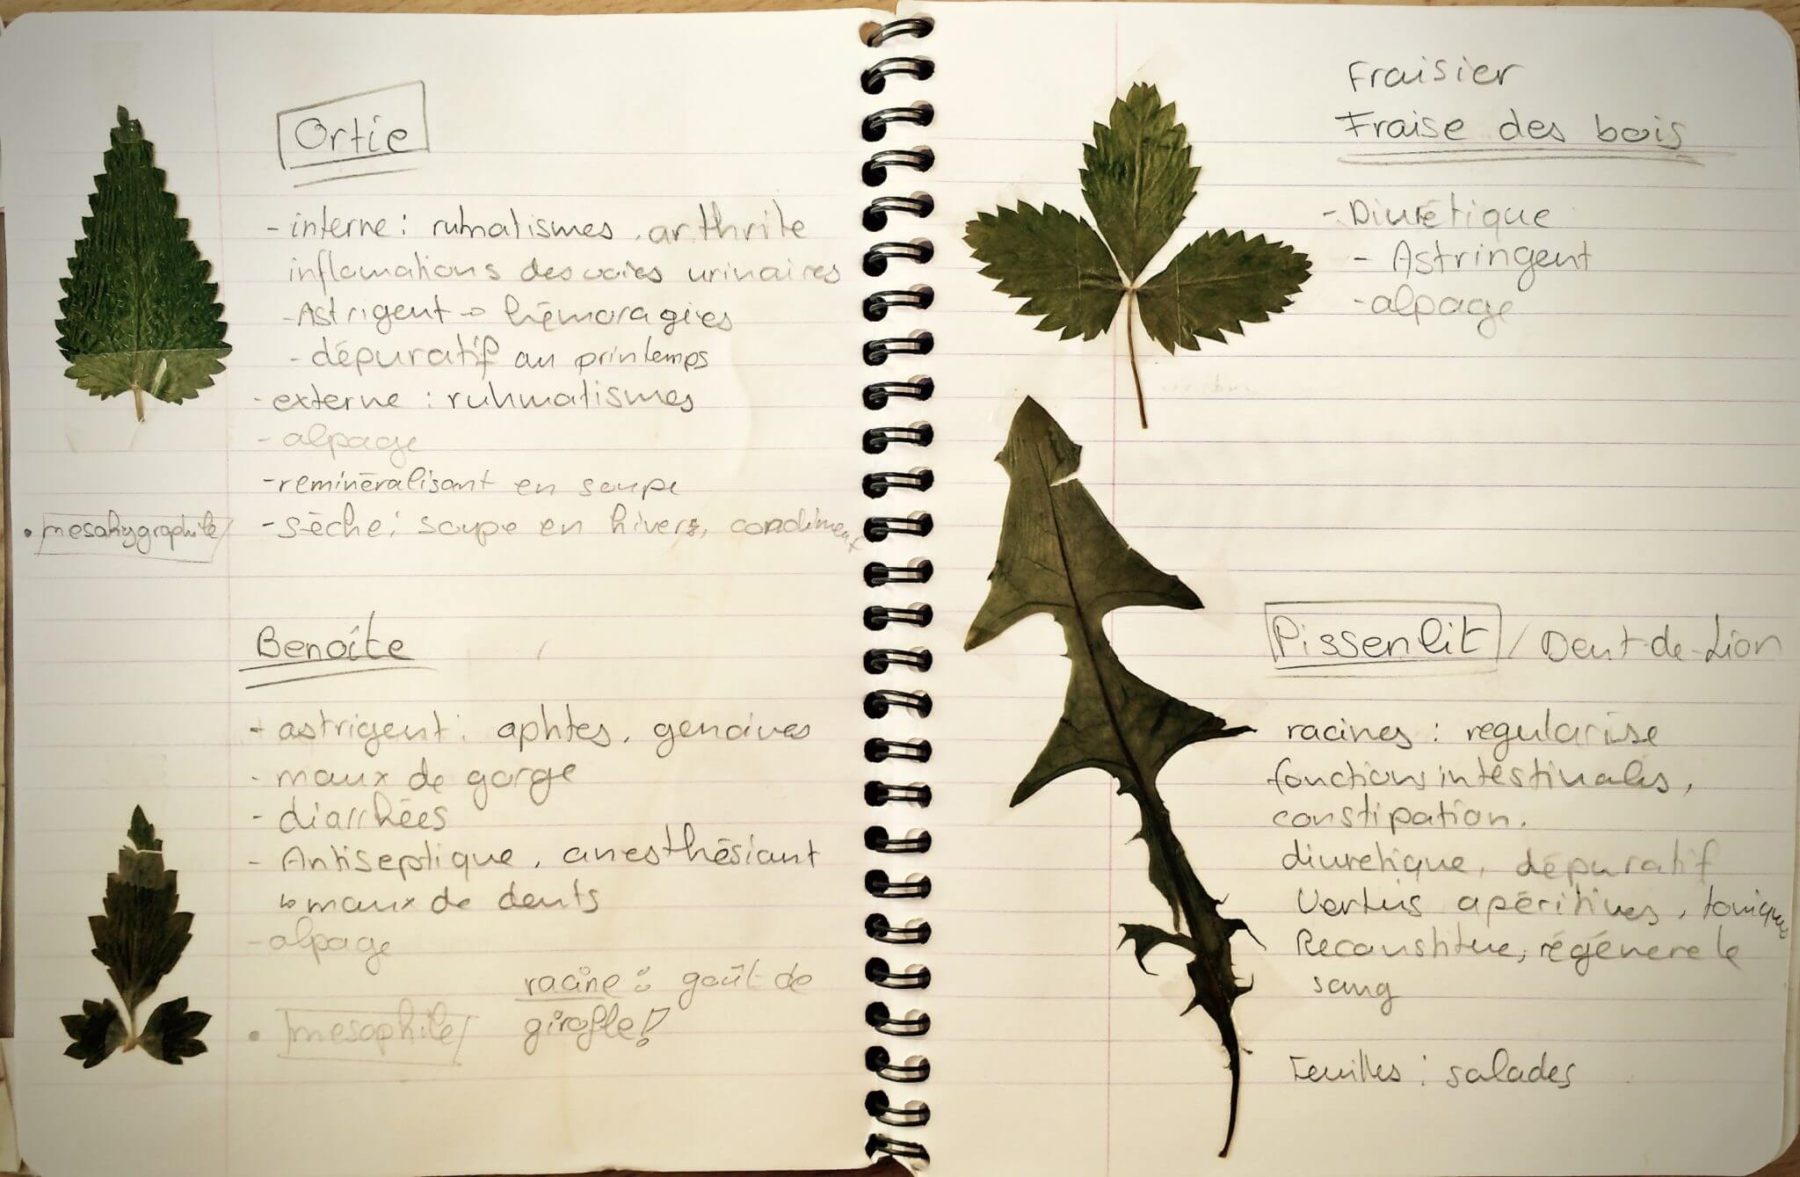 Ortie
- interne : ruhmatismes, arthrite
inflamations des voies urinaires
- Astrigent → hémoragies
- dépuratif au printemps
- externe : ruhmatismes
- alpage
- reminéralisant en soupe
• mesohygrophile
- sèche : soupe en hivers, condiment
Benoîte
- astrigent : aphtes, gencives
- maux de gorge
- diarrhées
- Antiseptique, anesthésiant
↳ maux de dents
- alpage
racine : goût de
girofle !
• mesophile
Fraisier
Fraise des bois
- Diurétique
- Astringent
- alpage
Pissenlit / Dent-de-Lion
racines : regularise
fonctions intestinales,
constipation.
diuretique, dépuratif
Vertus apéritives, tonique
Reconstitue, régénere le
sang
Feuilles : salades